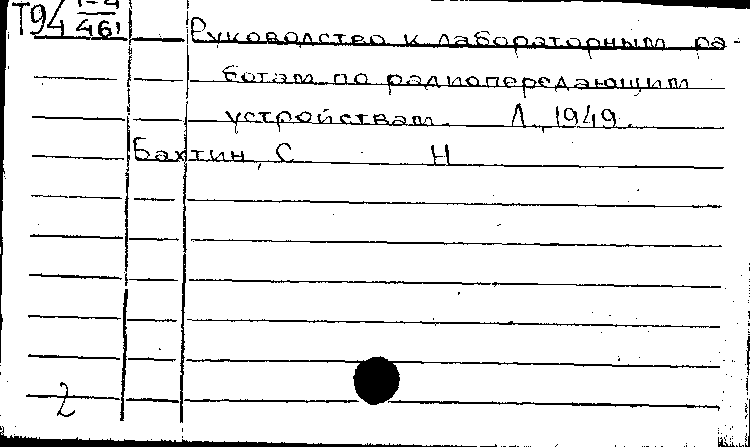 Т94 461 Руководство к лабораторным ра-
ботам по радиопередающим
устройствам. Л., 1949.
Бахтин, С Н
2